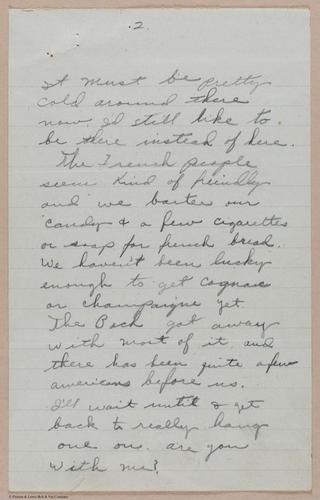 .2.
It must be pretty
cold around there
now I'd still like to
be there instead of here.
The French people
seem kind of friendly
and we barter our
candy & a few cigarettes
or soap for french bread.
We haven't been lucky
enough to get cognac
or champaigne yet.
The Boch got away
with most of it and
there has been quite a few
americans before us.
I'll wait until I get
back to really hang
one on. are you
with me?